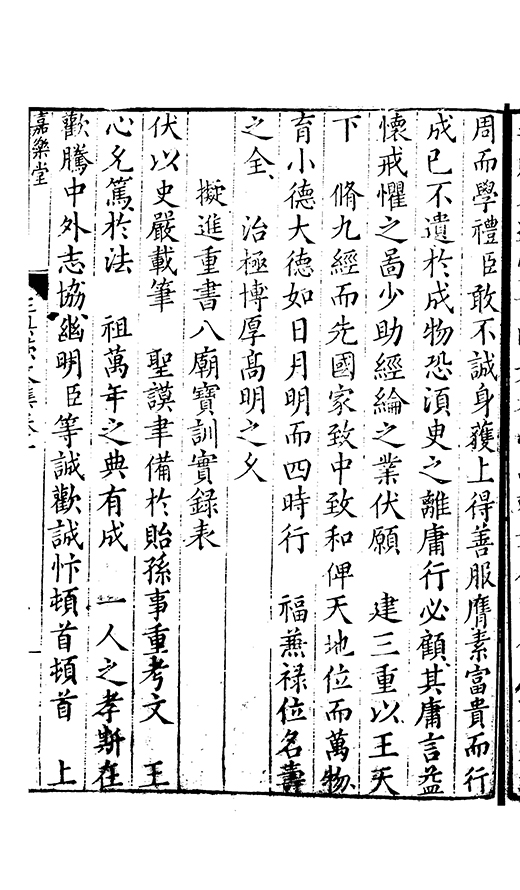 周而學禮臣敢不誠身獲上得善服膺素富貴而行
成已不遺於成物恐湏臾之離庸行必顧其庸言益
懷戒懼之啚少助經綸之業伏願　建三重以王天
下　脩九經而先國家致中致和俾天地位而萬物
育小德大德如日月明而四時行　福兼禄位名壽
之全　治極博厚髙明之久
擬進重書八廟寶訓實録表
伏以史嚴載筆　聖謨聿備於貽孫事重考文　王
心允篤於法　祖萬年之典有成　一人之孝斯在
歡騰中外志協幽明臣等誠歡誠忭頓首頓首　上
嘉樂堂